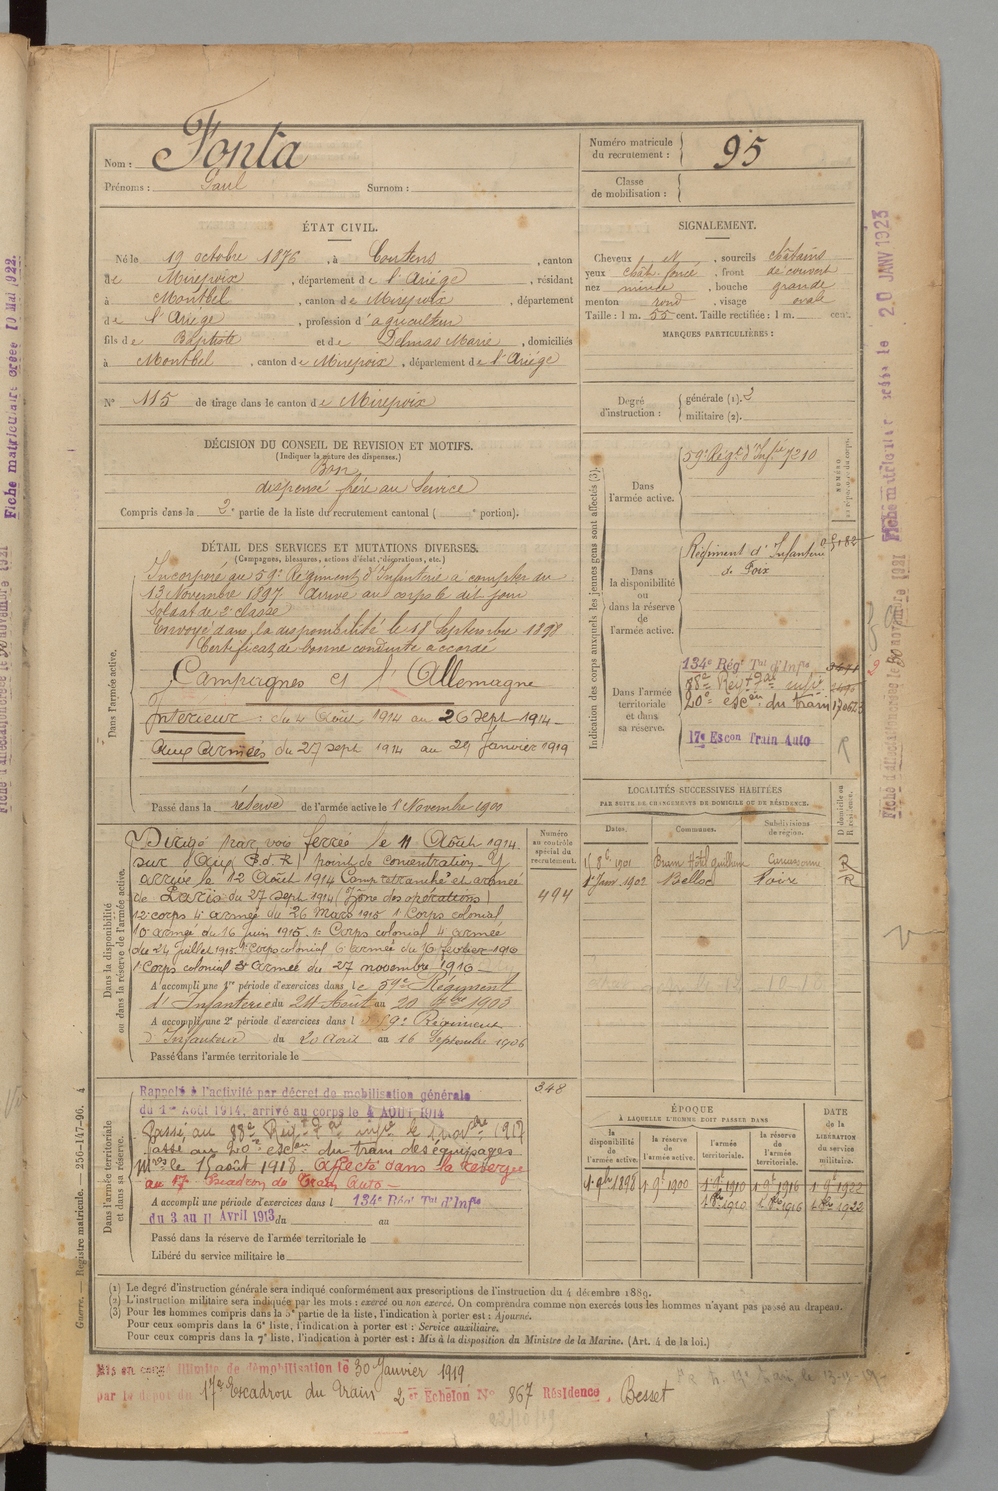 Nom : Fonta
Prénoms : Paul Surnom :
Numéro matricule du recrutement : 95
Classe de mobilisation :
ÉTAT CIVIL.
Né le 19 octobre 1876, à Coutens, canton
de Mirepoix, département de l'Ariège, résidant
à Montbel, canton de Mirepoix, département
de l'Ariège, profession d'agriculteur
fils de Baptiste et de Delmas Marie, domiciliés
à Montbel, canton de Mirepoix, département de l'Ariège
N° 115 de tirage dans le canton de Mirepoix
SIGNALEMENT.
Cheveux et N, sourcils châtains
yeux chât. foncé, front découvert
nez mince, bouche grande
menton rond, visage ovale
Taille : 1 m. 55 cent. Taille rectifiée : 1 m. cent.
MARQUES PARTICULIÈRES :
Degré d'instruction : générale (1). 3
militaire (2).
DÉCISION DU CONSEIL DE REVISION ET MOTIFS.
(Indiquer la nature des dispenses.)
Bon
dispensé frère au service
Compris dans la 2e partie de la liste du recrutement cantonal ( portion).
DÉTAIL DES SERVICES ET MUTATIONS DIVERSES.
(Campagnes, blessures, actions d'éclat, décorations, etc.)
Dans l'armée active.
Incorporé au 59e Régiment d'Infanterie à compter du
13 Novembre 1897 Arrivé au corps le dit jour
Soldat de 2e classe
Envoyé dans la disponibilité le 18 Septembre 1898
Certificat de bonne conduite accordé
Campagnes et l'Allemagne
Intérieur : du 4 Août 1914 au 26 sept 1914
Aux Armées du 27 sept 1914 au 29 Janvier 1919
Passé dans la réserve de l'armée active le 1 Novembre 1900
Indication des corps auxquels les jeunes gens sont affectés (3).
Dans l'armée active.
59e Régt d'Infrie 7210
NUMÉRO
Dans la disponibilité ou dans la réserve de l'armée active.
Régiment d'Infanterie
de Foix
Dans l'armée territoriale et dans sa réserve.
134e Régt Tal d'Infie
88e Regt Tal infie
20e escon du train
17e Escon Train Auto
LOCALITÉS SUCCESSIVES HABITÉES
PAR SUITE DE CHANGEMENTS DE DOMICILE OU DE RÉSIDENCE.
Dates. Communes. Subdivisions de région. D domicile ou R résidence.
1901 Bram Carcassonne R
1er Janv 1902 Belloc Foix R
Dans la disponibilité ou dans la réserve de l'armée active.
Numéro au contrôle spécial du recrutement.
494
Dirigé par voie ferrée le 11 Août 1914
sur (Aux P.d.R) point de concentration - Y
arrivé le 12 Août 1914 Camp retranché et armée
de Paris du 27 sept 1914 (Zône des opérations)
12e corps 4e armée du 26 Mars 1915 1er Corps colonial
10e armée du 16 juin 1915. 1er Corps colonial 4e armée
du 24 juillet 1915 1er Corps colonial 6e armée du 6 février 1916
1er Corps colonial 3e armée du 27 novembre 1916
A accompli une 1re période d'exercices dans le 59e Régiment
d'Infanterie du 24 Août au 20 7bre 1903
A accompli une 2e période d'exercices dans l 59e Régiment
d'Infanterie du 20 Août au 16 Septembre 1906
Passé dans l'armée territoriale le
Dans l'armée territoriale et dans sa réserve.
348
Rappelé à l'activité par décret de mobilisation générale
du 1er Août 1914, arrivé au corps le 4 AOUT 1914
Passé au 88e Regt Tal infie le 1 Novbre 1917
Passé au 20e escon du train des équipages
Mres le 15 août 1918. Affecté dans la réserve
au 17e Escadron de Train Auto
A accompli une période d'exercices dans l 134e Régt Tal d'Infie
du 3 au 11 Avril 1913 du au
Passé dans la réserve de l'armée territoriale le
Libéré du service militaire le
ÉPOQUE
À LAQUELLE L'HOMME DOIT PASSER DANS
la disponibilité de l'armée active. la réserve de l'armée active. l'armée territoriale. la réserve de l'armée territoriale. DATE de la LIBÉRATION du service militaire.
1er 9bre 1898 1er 9bre 1900 1er 9bre 1910 1er 9bre 1916 1er 9bre 1922
1er 8bre 1910 1er 8bre 1916 1er 8bre 1922
(1) Le degré d'instruction générale sera indiqué conformément aux prescriptions de l'instruction du 4 décembre 1889.
(2) L'instruction militaire sera indiquée par les mots : exercé ou non exercé. On comprendra comme non exercés tous les hommes n'ayant pas passé au drapeau.
(3) Pour les hommes compris dans la 5e partie de la liste, l'indication à porter est : Ajourné.
Pour ceux compris dans la 6e liste, l'indication à porter est : Service auxiliaire.
Pour ceux compris dans la 7e liste, l'indication à porter est : Mis à la disposition du Ministre de la Marine. (Art. 4 de la loi.)
Mis en congé illimité de démobilisation le 30 Janvier 1919
par le dépôt du 17e Escadron du Train 2e Echelon N° 867 Résidence, Besset
22/10/19
Guerre. — Registre matricule. — 256-147-96. 4
Fiche matriculaire créée le 20 JANV 1923